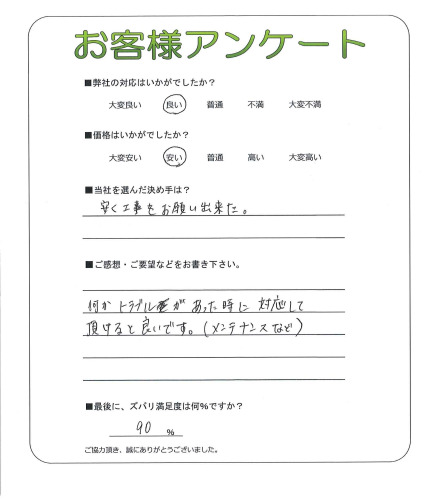 お客様アンケート
■弊社の対応はいかがでしたか?
大変良い 良い 普通 不満 大変不満
■価格はいかがでしたか?
大変安い 安い 普通 高い 大変高い
■当社を選んだ決め手は?
安く工事をお願い出来た。
■ご感想・ご要望などをお書き下さい。
何かトラブルがあった時に対応して
頂けると良いです。(メンテナンスなど)
■最後に、ズバリ満足度は何%ですか?
90 %
ご協力頂き、誠にありがとうございました。